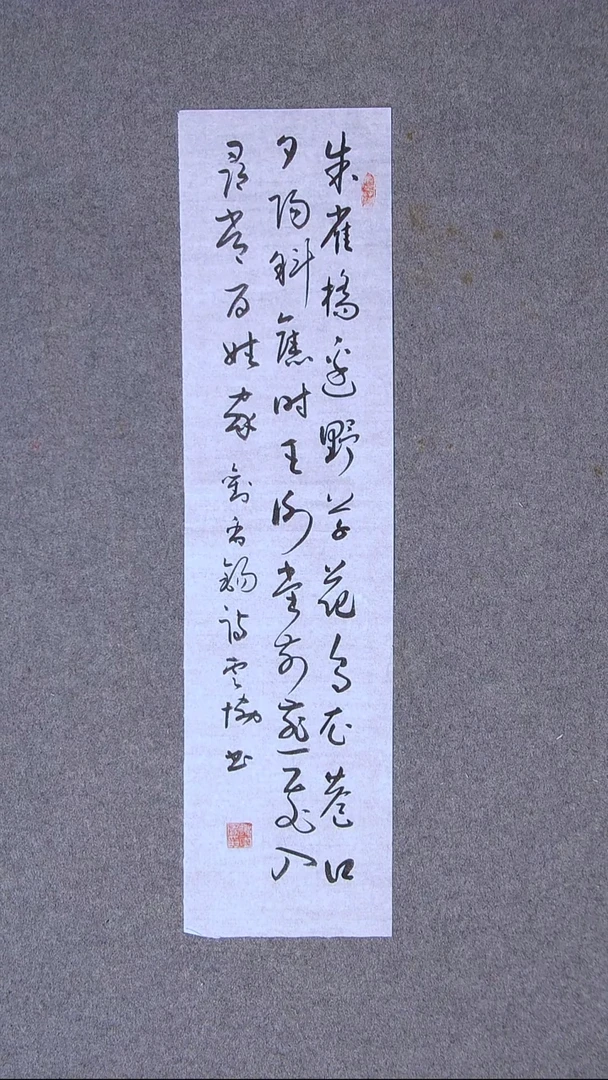 朱雀橋邊野草花烏衣巷口
夕陽斜舊時王謝堂前燕飛入
尋常百姓家 劉禹錫詩 雲書